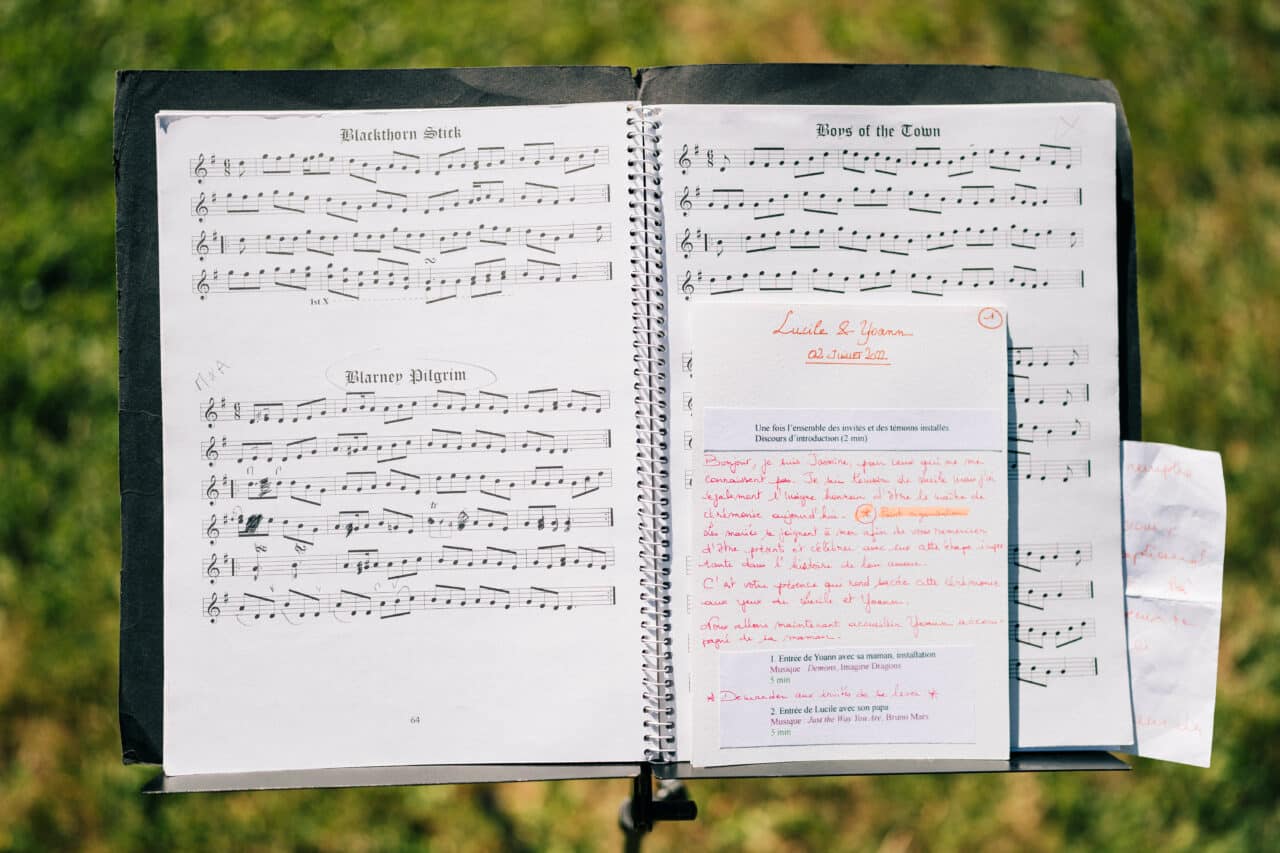 Blackthorn Stick
1st X
M & A
Blarney Pilgrim
tr
64
Boys of the Town
1
Lucile & Yoann
02 Juillet 2022
Une fois l'ensemble des invités et des témoins installés
Discours d'introduction (2 min)
Bonjour, je suis Jasmine, pour ceux qui ne me
connaissent pas. Je suis témoin de Lucile mais j'ai
également l'insigne honneur d'être le maître de
cérémonie aujourd'hui. Point organisation
Les mariés se joignent à moi afin de vous remercier
d'être présents et célébrer avec eux cette étape impor
tante dans l'histoire de leur amour.
C'est votre présence qui rend sacrée cette cérémonie
aux yeux de Lucile et Yoann.
Nous allons maintenant accueillir Yoann accom
pagné de sa maman.
1. Entrée de Yoann avec sa maman, installation
Musique : Demons, Imagine Dragons
5 min
* Demander aux invités de se lever *
2. Entrée de Lucile avec son papa
Musique : Just the Way You Are, Bruno Mars
5 min